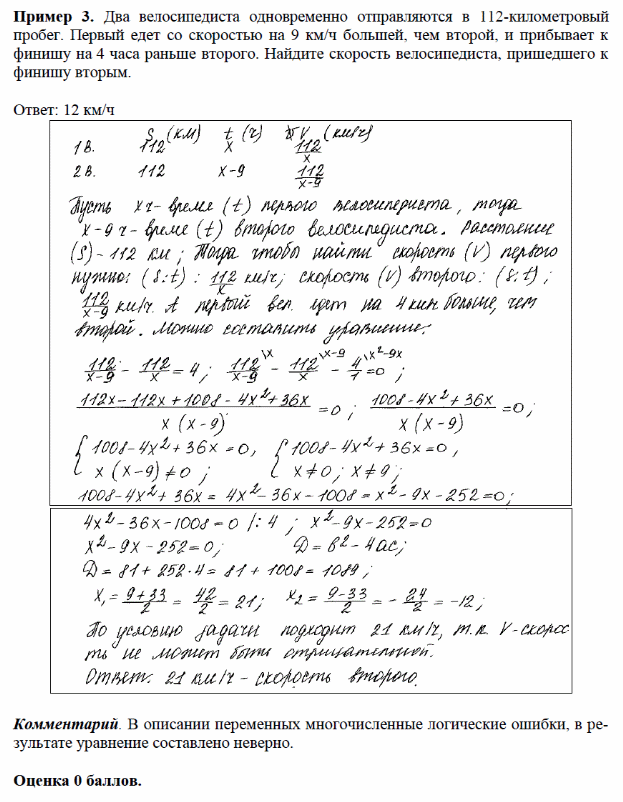 Пример 3. Два велосипедиста одновременно отправляются в 112-километровый
пробег. Первый едет со скоростью на 9 км/ч большей, чем второй, и прибывает к
финишу на 4 часа раньше второго. Найдите скорость велосипедиста, пришедшего к
финишу вторым.
Ответ: 12 км/ч
S (км) t (ч) V (км/ч)
1 в. 112 x 112/x
2 в. 112 x-9 112/(x-9)
Пусть x ч - время (t) первого велосипедиста, тогда
x-9 ч - время (t) второго велосипедиста. Расстояние
(S) - 112 км; Тогда чтобы найти скорость (V) первого
нужно: (S:t) : 112/x км/ч; скорость (V) второго: (S:t);
112/(x-9) км/ч. А первый вел. едет на 4 км больше, чем
второй. Можно составить уравнение:
112/(x-9) - 112/x = 4; 112/(x-9) \x - 112/x \x-9 - 4/1 \x²-9x = 0;
(112x-112x+1008-4x²+36x)/(x(x-9)) = 0; (1008-4x²+36x)/(x(x-9)) = 0;
{ 1008-4x²+36x=0, { 1008-4x²+36x=0,
x(x-9)≠0; x≠0; x≠9;
1008-4x²+36x = 4x²-36x-1008 = x²-9x-252=0;
4x²-36x-1008=0 /:4; x²-9x-252=0
x²-9x-252=0; D=b²-4ac;
D=81+252·4=81+1008=1089;
x₁=(9+33)/2=42/2=21; x₂=(9-33)/2=-24/2=-12;
По условию задачи подходит 21 км/ч, т.к. V-скорос-
ть не может быть отрицательной.
Ответ: 21 км/ч - скорость второго.
Комментарий. В описании переменных многочисленные логические ошибки, в ре-
зультате уравнение составлено неверно.
Оценка 0 баллов.